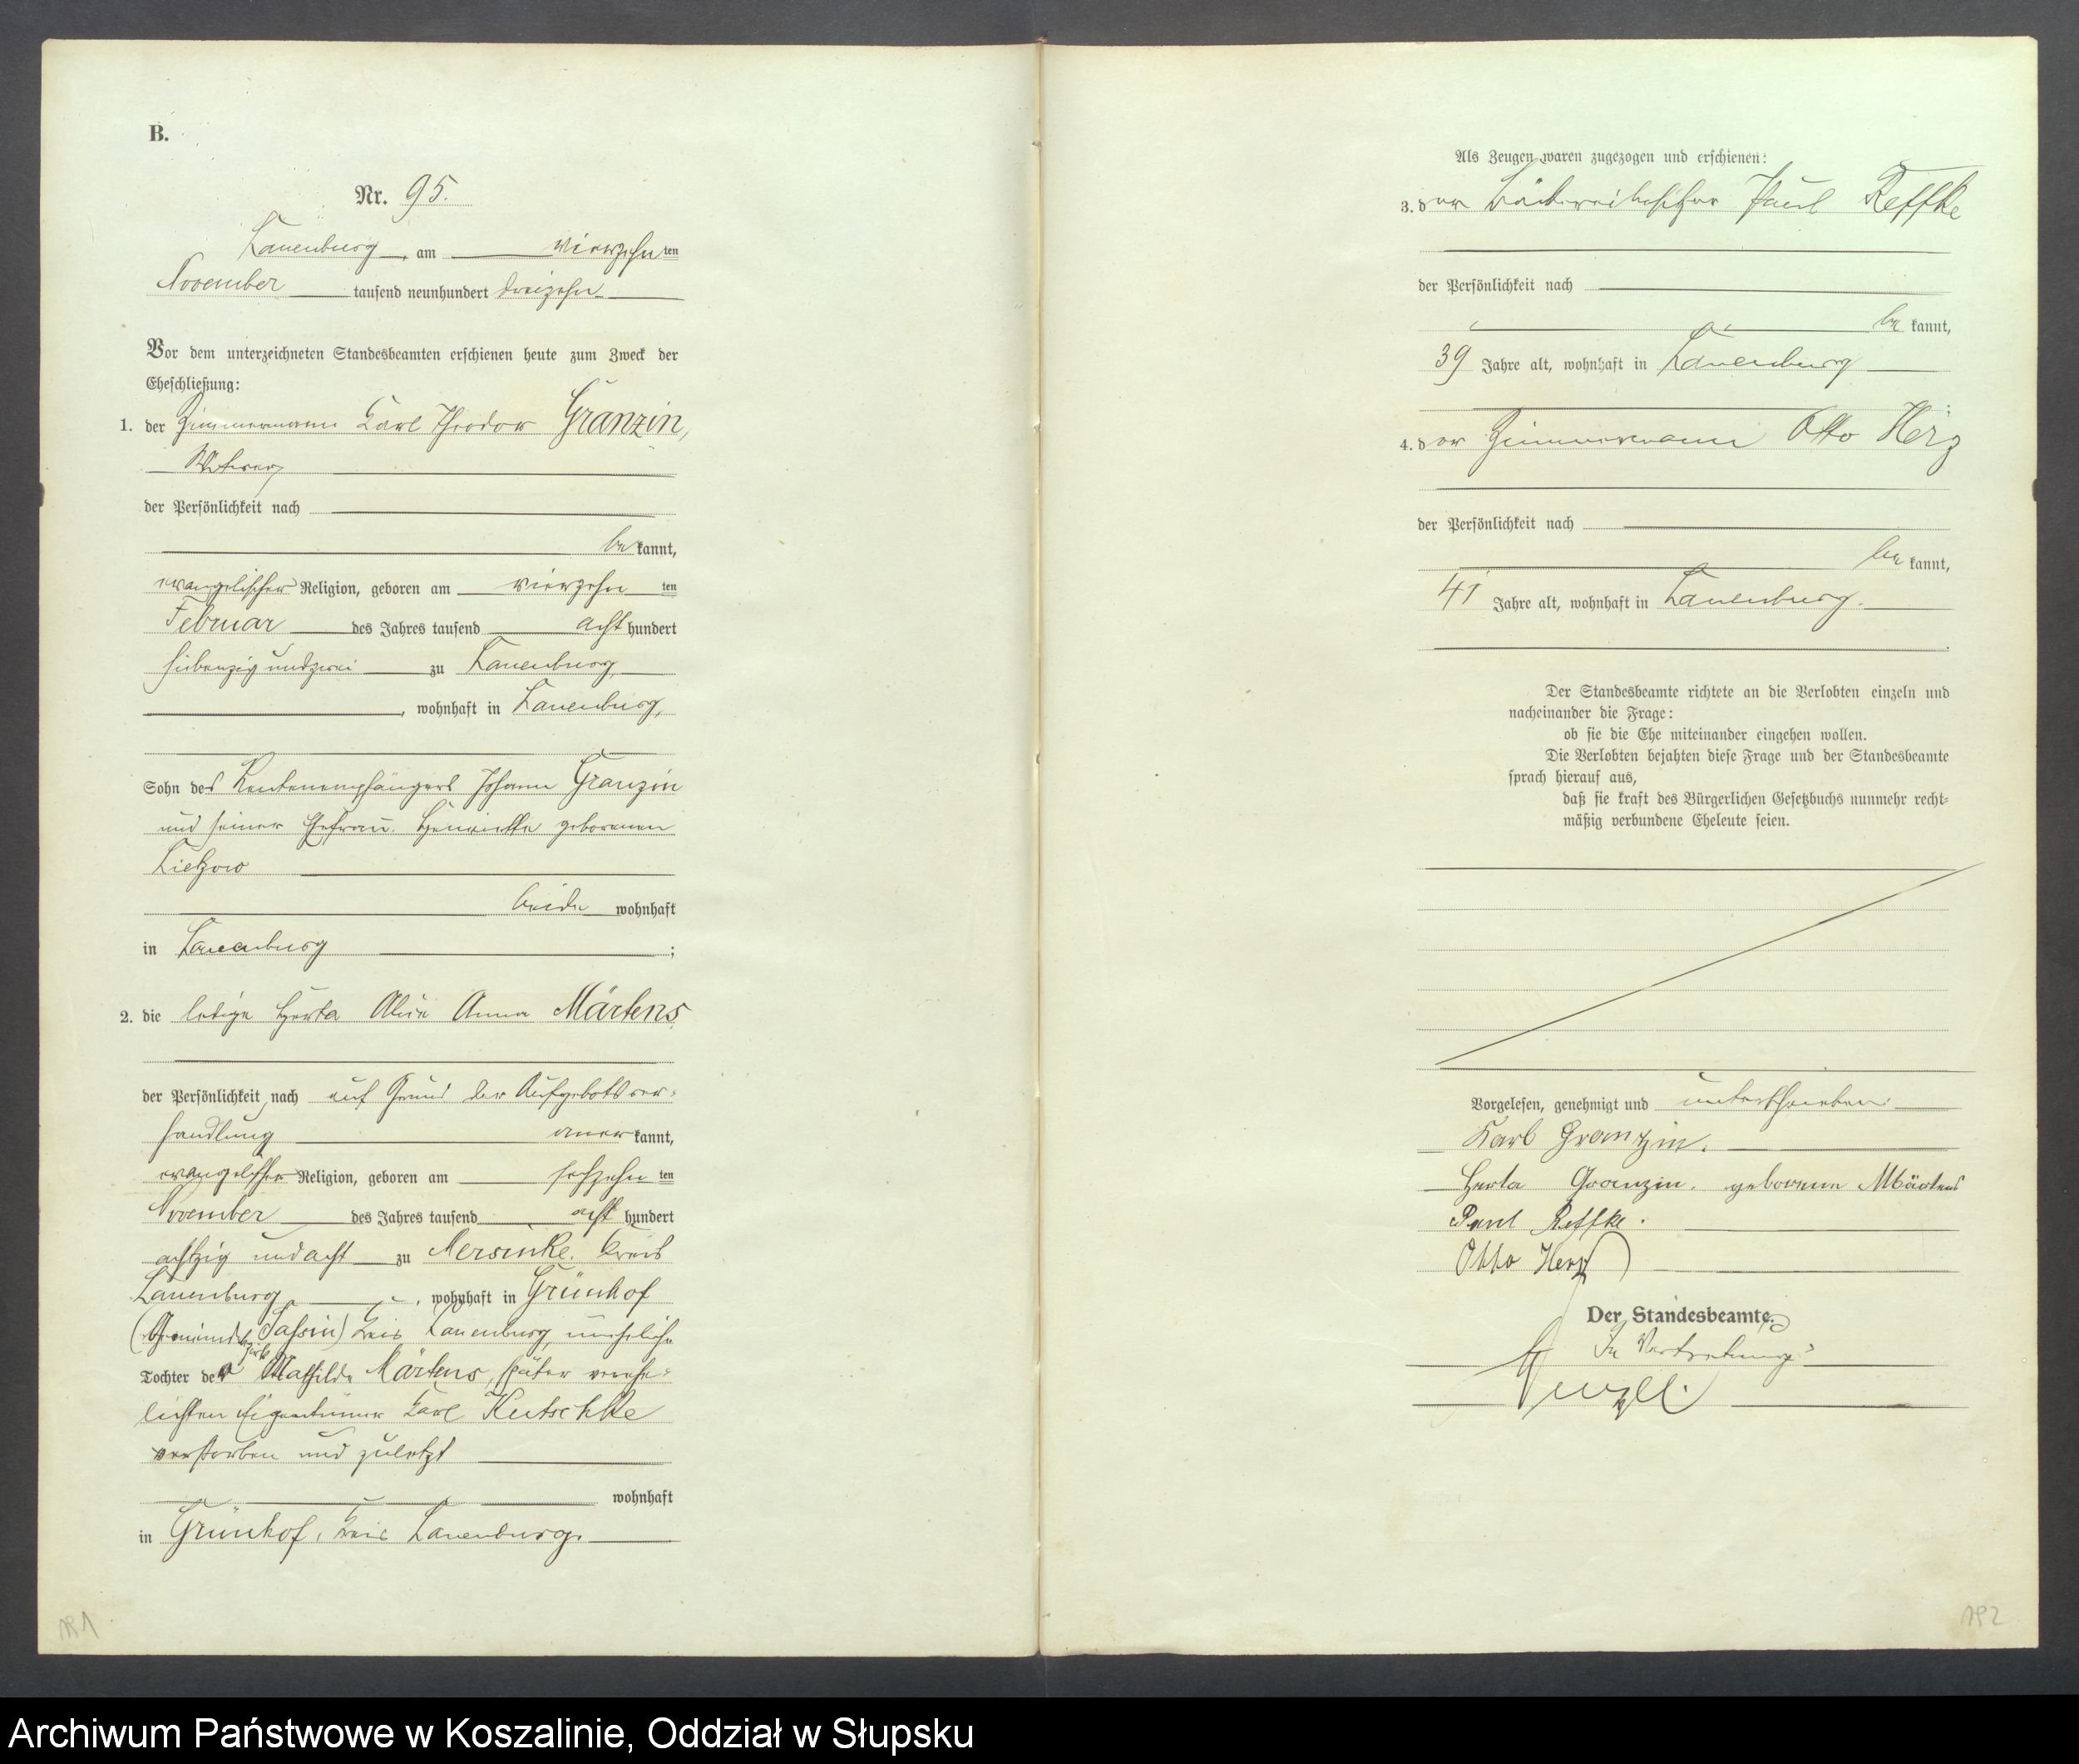 B.
Nr. 95.
Lauenburg, am vierzehnten
November tausend neunhundert dreizehn
Vor dem unterzeichneten Standesbeamten erschienen heute zum Zweck der
Eheschließung:
1. der Zimmermann Karl Theodor Granzin,
Witwer,
der Persönlichkeit nach
bekannt,
evangelischer Religion, geboren am vierzehnten
Februar des Jahres tausend achthundert
siebenzig undzwei zu Lauenburg,
, wohnhaft in Lauenburg,
Sohn des Rentenempfängers Johann Granzin
und seiner Ehefrau Henriette geborenen
Lietzow
beide wohnhaft
in Lauenburg ;
2. die ledige Herta Alice Anna Märtens
der Persönlichkeit nach auf Grund der Aufgebotsver-
handlung anerkannt,
evangelischer Religion, geboren am sechzehnten
November des Jahres tausend achthundert
achtzig undacht zu Mersinke, Kreis
Lauenburg, wohnhaft in Grünhof
(Gemeindebezirk Sassin) Kreis Lauenburg, uneheliche
Tochter der Mathilde Märtens, später verehe-
lichten Eigentümer Karl Kutschke
verstorben und zuletzt
wohnhaft
in Grünhof, Kreis Lauenburg.
191
Als Zeugen waren zugezogen und erschienen:
3. der Bäckereibesitzer Paul Reffke
der Persönlichkeit nach
bekannt,
39 Jahre alt, wohnhaft in Lauenburg
;
4. der Zimmermann Otto Herz
der Persönlichkeit nach
bekannt,
41 Jahre alt, wohnhaft in Lauenburg.
Der Standesbeamte richtete an die Verlobten einzeln und
nacheinander die Frage:
ob sie die Ehe miteinander eingehen wollen.
Die Verlobten bejahten diese Frage und der Standesbeamte
sprach hierauf aus,
daß sie kraft des Bürgerlichen Gesetzbuchs nunmehr recht-
mäßig verbundene Eheleute seien.
Vorgelesen, genehmigt und unterschrieben
Karl Granzin.
Herta Granzin. geborene Märtens
Paul Reffke.
Otto Herz
Der Standesbeamte.
In Vertretung
192
Archiwum Państwowe w Koszalinie, Oddział w Słupsku